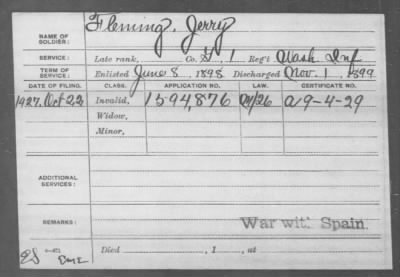 NAME OF SOLDIER: Fleming, Jerry
SERVICE: Late rank, Co. G, 1 Reg't Wash Inf
TERM OF SERVICE: Enlisted June 8, 1898 Discharged Nov. 1, 1899
DATE OF FILING. CLASS. APPLICATION NO. LAW. CERTIFICATE NO.
1927. Oct 22 Invalid, 1594,876 a 9-4-29
Widow,
Minor,
ADDITIONAL SERVICES:
REMARKS: War with Spain.
Died , 1 , at